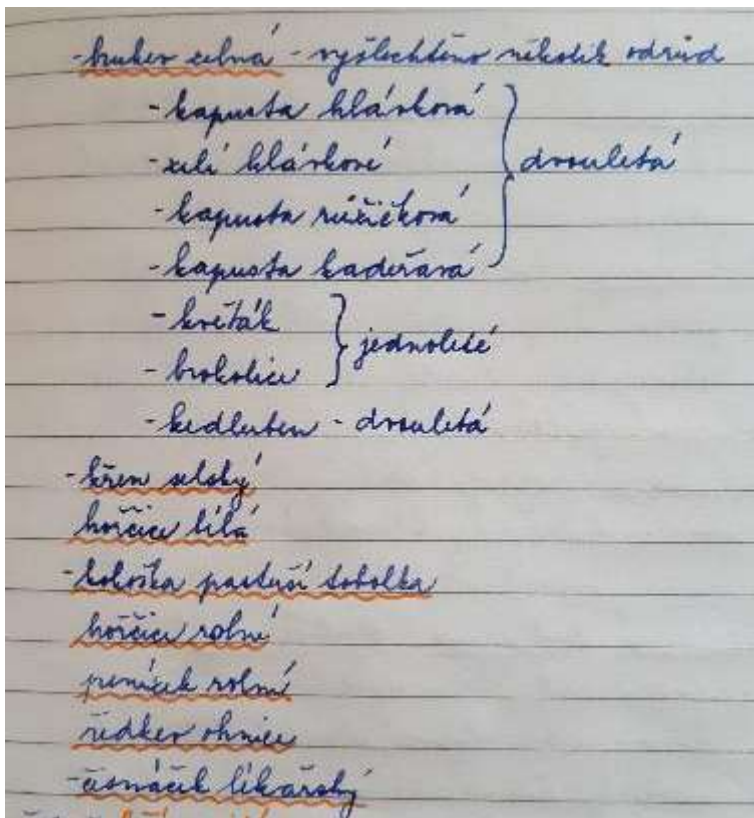 - brukev zelná - vyšlechtěno několik odrůd
- kapusta hlávková
- zelí hlávkové
dvouletá
- kapusta růžičková
- kapusta kadeřavá
- květák
- brokolice
jednoleté
- kedluben - dvouletá
- křen selský
hořčice bílá
- kokoška pastuší tobolka
hořčice rolní
penízek rolní
ředkev ohnice
- česnáček lékařský